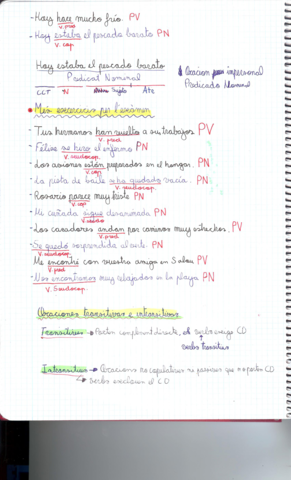 -Hoy hace mucho frío. PV
V. pred
-Hoy estaba el pescado barato PN
V. cop
Hoy estaba el pescado barato
Predicat Nominal
CCT N Sujto Atr
Oracion impersonal
Predicado Nominal
• Més exercicis per l'exàmen
- Tus hermanos han vuelto a sus trabajos PV
V. pred
- Felipe se hizo el enfermo PN
V. seudocop.
- Los aviones están preparados en el hangar. PN
V. cop
- La pista de baile se ha quedado vacía. PN
V. seudocop
- Rosario parece muy triste PN
V. cop
- Mi cuñada sigue desanimada PN
- Los cazadores andan por caminos muy estrechos. PV
V. pred
- Se quedó sorprendida al verte. PN
V. seudocop
Me encontré con vuestro amigo en Salou PV
V. pred
- Nos encontramos muy relajados en la playa PN
V. Seudocop.
Oraciones transitivas e intransitivas
Transitives → Porten complement directe, el verbo exige CD
verbs transitius
Intransitius → Oracions no copulatives ni passives que no porten CD
→ Verbs exclouen el CD